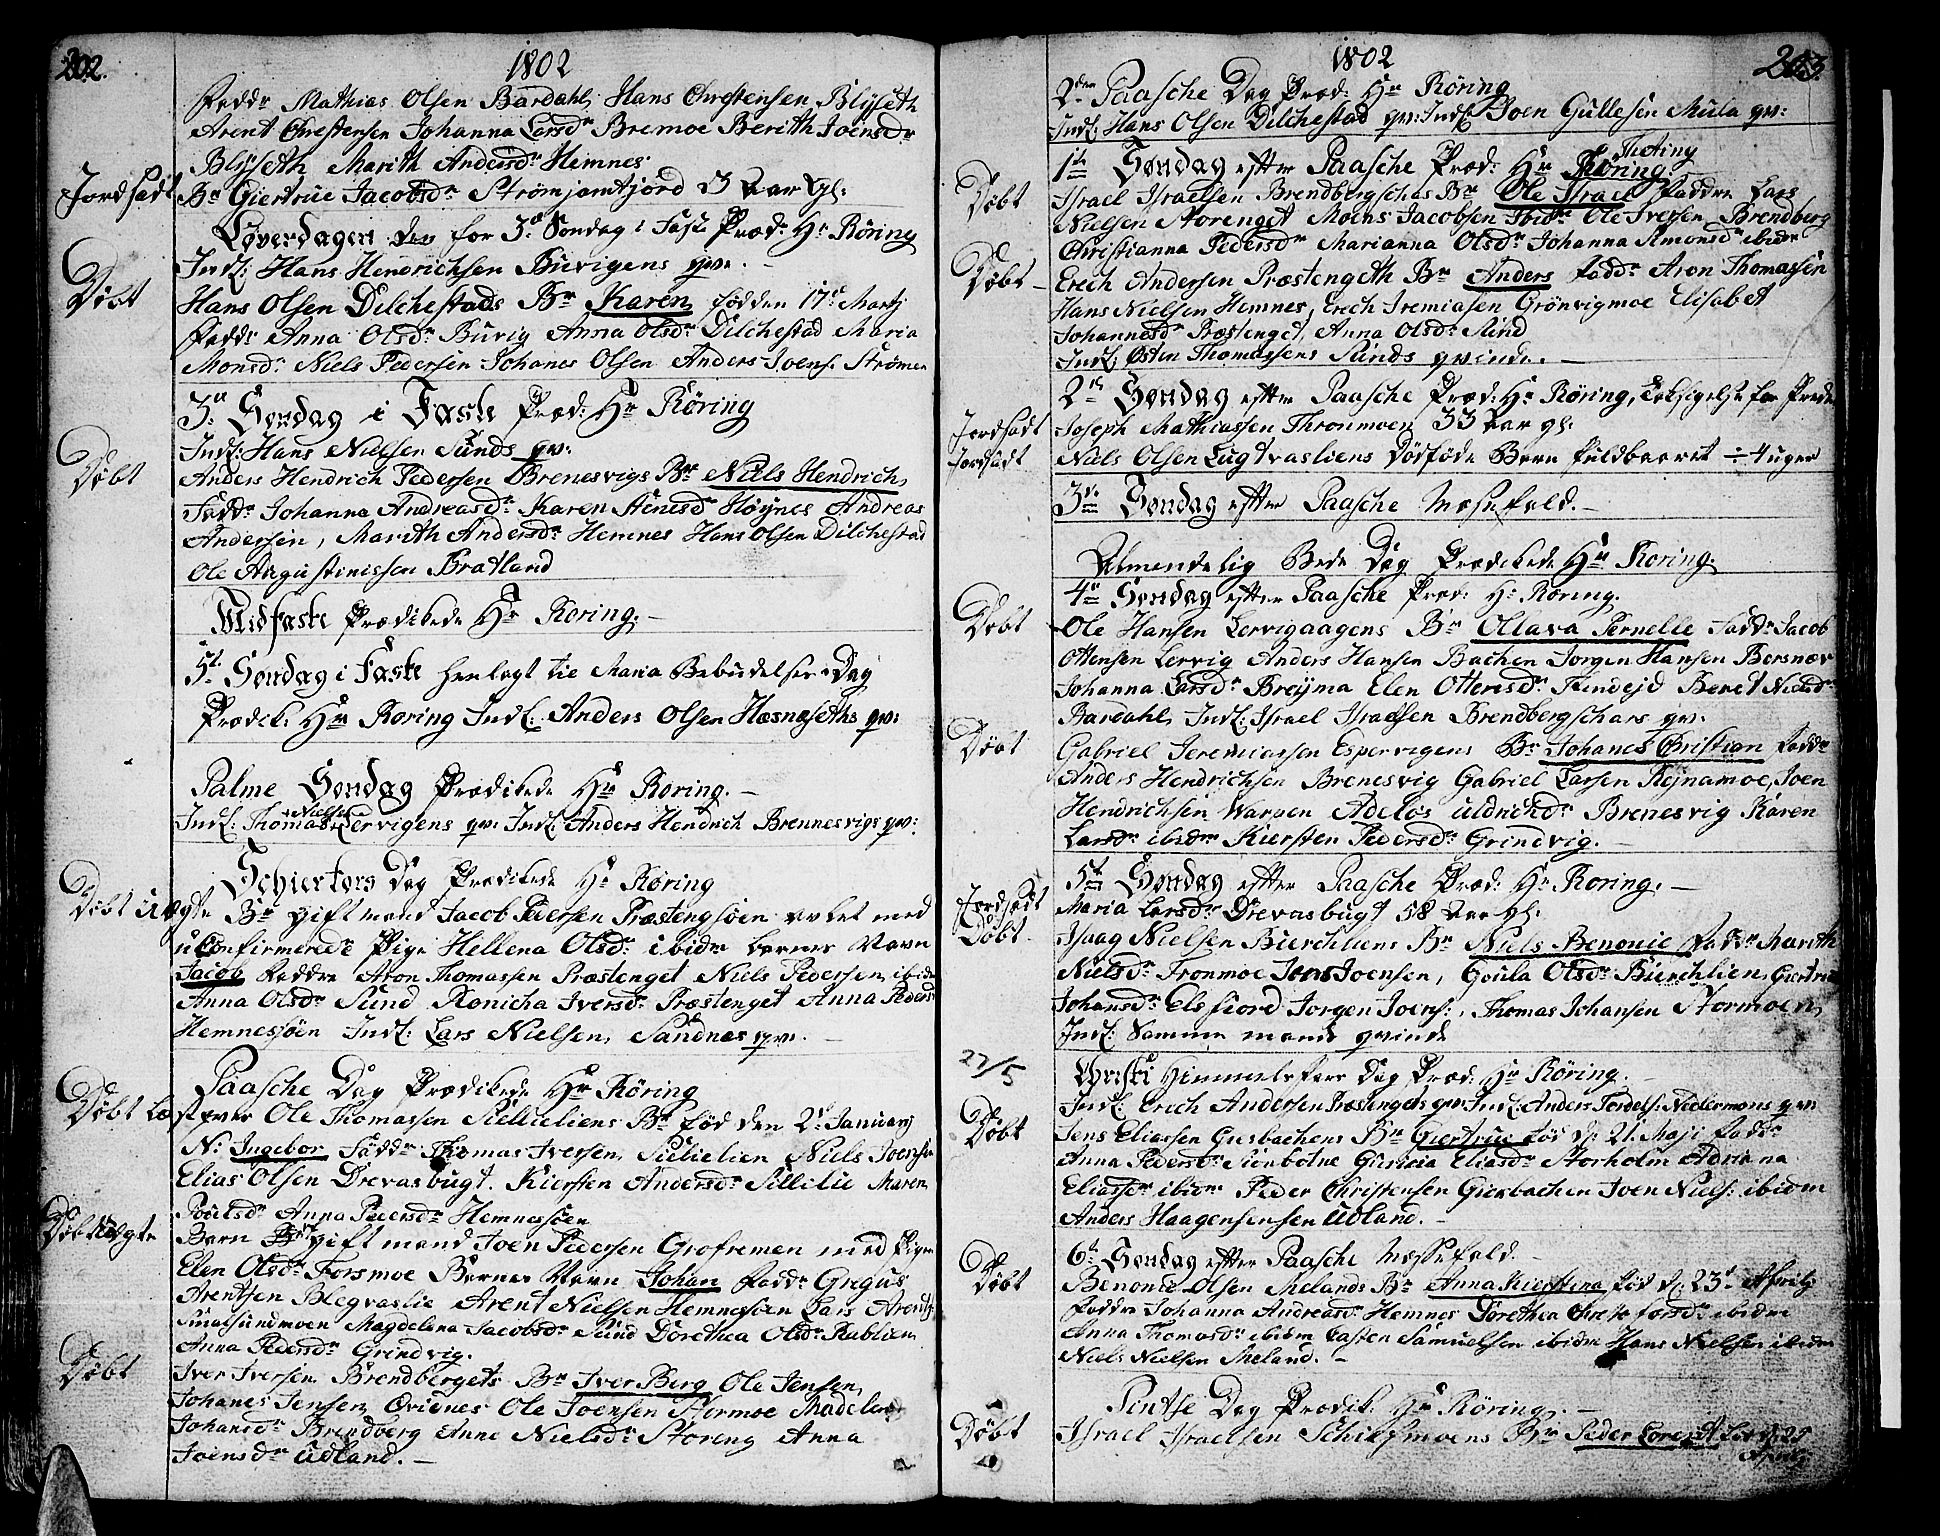 202.
1802
Faddr Mathias Olsen Bardahl, Hans Chrestensen Blyseth
Arent Chrestensen Johanna Larsdr Bremoe Berith Joensdr
Blyseth Marith Andersdr Hemnes
Jordsadt Br Giertrue Jacobsdr Strømjamtjord 3 Aar gl:
Løverdagen den for 3die Søndag i Faste Præd: Hr Röring
Indl: Hans Hendrichsen Buvigens qv: -
Døbt Hans Olsen Dilchestads Br Karen fød den 17de Martj
Faddr Anna Olsdr Buvig Anna Olsdr Dilchestad Maria
Monsdr Niels Pedersen Johanes Olsen Anders Joens. Strømen
3die Søndag i Faste Præd: Hr Röring
Indl: Hans Nielsen Sunds qv:
Døbt Anders Hendrich Pedersen Brenesvigs Br Niels Hendrich,
Faddr Johanna Andreasdr Karen Høynes Andreas
Andersen, Marith Andersdr Hemnes Hans Olsen Dilchestad
Ole Augustinissen Bratland
Midfaste Prædikede Hr Roring. -
5te Søndag i Faste henlagt til Maria Bebudelses Dag
Prædik: Hr Roring Indl: Anders Olsen Hæsnæseths qv:
Palme Søndag Prædikede Hr Roring. -
Indl: Thomas Nielsen Lervigens qv: Indl: Anders Hendrich Brennesvigs qv:
Schiertors Dag Prædikede Hr Röring
Døbt Uægte Br gift mand Jacob Pedersen Præstengsøen avlet med
uConfirmerede Pige Hellena Olsdr ibidm barnes Navn
Jacob Faddre Aron Thomassen Præstenget Niels Pedersen ibidm
Anna Olsdr Sund Konicha Iversdr Præstenget Anna Pedersdr
Hemnessøen Indl: Lars Nielsen, Sandnes qv: -
Paasche Dag Prædikede Hr Röring
Døbt Ole Thomassen Sellieliens Br fød den 2de Januarj
N: Ingebor Faddr Thomas Iversen Sellielien Niels Joensen
Elias Olsen Drevasbugt. Kiersten Andersdr Sellelie Maren
Poulsdr Anna Pedersdr Hemnessøen
Døbt Uægte Barn gift mand Joen Pedersen Grofremen med Pigen
Elen Olsdr Forsmoe Bernes Navn Johan Faddr Gregus
Arentsen Blegvaslie Arent Nielsen Hemnesøen Lars Arents.
Magdelena Jacobsdr Sund Dorethea Olsdr
Anna Pedersdr Grindvig.
Døbt Iver Iversen Brendbergets Br Iver Berg Ole Jensen,
Johanes Jensen Ole Joensen Stormoe Madelena
Johansdr Brendberg Anne Nielsdr Storeng Anna
Joensdr Udland. -
203.
1802
2den Paasche Dag Præd: Hr Röring
Indl: Hans Olsen Dilchestad qv: Indl: Joen Gullesen Mula qv:
1te Søndag efter Paasche Præd: Hr
Døbt Israel Israelsen Brendbergschas Br Ole Israel Faddre Lars
Nielsen Storenget Moens Jacobsen Ibidm Ole Iversen Brendberg
Christianna Pedersdr Marianna Olsdr Johanna Simonsdr ibidm
Døbt - Erich Andersen Præstengeth Br Anders Faddr Aron Thomassen
Hans Nielsen Hemnes, Erich Jremiasen Grönvigmoe Elisabet
Johannesdr Præstenget, Anna Olsdr Sund
Indl: Østen Thomassens Sunds qvinde. -
2den Søndag efter Paasche Præd: Hr Röring, Taksigelse for Freden
Jordsadt Joseph Mathiassen Thronmoen 33 Aar gl:
Jordsadt Niels Olsen Lugtvasliens Dødføde Barn fuldbaaret ÷ 4 uger
3die Søndag efter Paasche Mesefald. -
Almendelig Bede Dag Prædikede Hr Roring.
4de Søndag efter Paasche Præd: H: Röring.
Døbt Ole Hansen Lervigaagens Br Ollava Pernelle Faddr Jacob
Ottensen Lervig Anders Hansen Bachen Jorgen Hansen Bersnær
Johanna Larsdr Brejma Elen Otteresdr Findejd Beret Nielsdr
Bardahl, Indl: Israel Israelsen Brendbergschars qv:
Døbt Gabriel Jeremiassen Espervigens Br Johanes Christian Faddr
Anders Hendrichsen Brenesvig Gabriel Larsen Rejnamoe, Joen
Hendrichsen Warpen Adelos Uldrichdr Brenesvig Karen
Larsdr ibidm Kiersten Pedersdr Grindvig. -
5te Søndag efter Paasche Præd: Hr Roring. -
Jordsadt Maria Larsdr Drevasbugt 58 Aar gl:
Døbt Isaag Nielsen Bierchliens Br Niels Benonie Faddr Marith
Nielsdr Tronmoe Jens Joensen, Goula Olsdr Bierchlien, Giertrue
Johansdr Elsfiord Jorgen Joens:, Thomas Johansen Stormoen,
Indl: Samme mands qvinde
27/5 Christi Himmelsfars Dag Præd: Hr Röring. -
Indl: Erich Andersen Præstengets qv: Indl: Anders Tordels. Nedermons qv:
Døbt Jens Eliassen Giesbachens Br Giertrue fød d: 21. Maji Faddr
Anna Pedersdr Eliasdr Storholm Adriana
Eliasdr ibidm Peder Christensen Giesbachen Joen Niels: ibidm
Anders Haagensensen Udland. -
6te Søndag efter Paasche Messefald
Døbt Benonie Olsen Melands Br Anna Kierstina fød d: 23de Aprilj
Faddre Johanna Andreasdr Hemnes Dorethea ibidm
Anna Thomasdr ibidm Casten Samuelsen ibidm Hans Nielsen ibidm
Niels Nielsen Meland. -
Pintse Dag Prædik: Hr Röring. -
Døbt Israel Israelsen Br Peder Lorentz fød d: 25
Aprilj